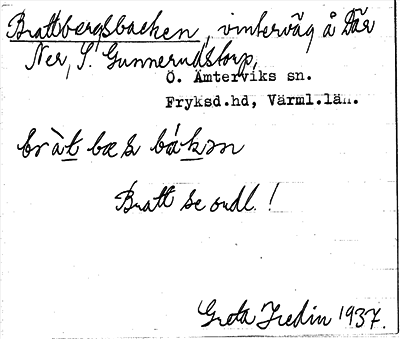 Brattbergsbacken, vinterväg å Där
Ner, S. Gunnerudstorp,
Ö. Ämterviks sn.
Fryksd.hd, Värml.län.
bràt bæs bákən
Bratt se ordl.!
Greta Hedin 1937.